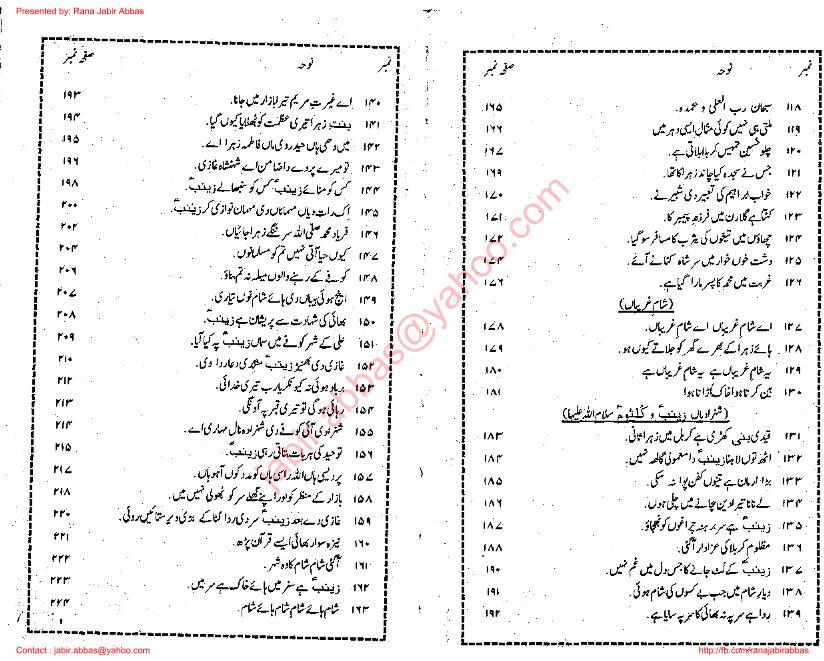 Presented by: Rana Jabir Abbas
نمبر نوحہ صفحہ نمبر
۱۱۸ سبحان رب العلیٰ و بحمدہ۔ ۱۶۵
۱۱۹ ملتی ہی نہیں کوئی مثال ایسی دہر میں ۱۶۶
۱۲۰ چلو حسینؑ تمہیں کربلا بلاتی ہے۔ ۱۶۷
۱۲۱ جس نے سجدہ کیا چاند زہراؑ کا تھا۔ ۱۶۹
۱۲۲ خواب براہیم کی تعبیر دی شبیرؑ نے۔ ۱۷۰
۱۲۳ کٹتا ہے گلا رن میں فرزند پیمبر کا۔ ۱۷۱
۱۲۴ چھاؤں میں تیغوں کی یثرب کا مسافر سو گیا۔ ۱۷۲
۱۲۵ دشت خوں خوار میں سر شاہ کٹانے آئے۔ ۱۷۴
۱۲۶ غربت میں محمدؐ کا پسر مارا گیا ہے۔ ۱۷۶
(شام غریباں)
۱۲۷ اے شام غریباں اے شام غریباں۔ ۱۷۸
۱۲۸ ہائے زہراؑ کے بھرے گھر کو جلاتے کیوں ہو۔ ۱۷۹
۱۲۹ یہ شام غریباں ہے یہ شام غریباں ہے ۱۸۰
۱۳۰ بین کرتا ہوا خاک اُڑاتا ہوا ۱۸۱
(شہزادیاں زینبؑ و کلثومؑ سلام اللہ علیہا)
۱۳۱ قیدی بنی کھڑی ہے کربل میں زہراؑ ثانی۔ ۱۸۳
۱۳۲ اٹھ توں لاہنا زینبؑ دا معمولی گالھ نہیں۔ ۱۸۴
۱۳۳ بڑا ارمان ہے تینوں کفن پوا نہ سکی۔ ۱۸۵
۱۳۴ لے نانا تیرا دین بچانے میں چلی ہوں۔ ۱۸۶
۱۳۵ زینبؑ ہے سر برہنہ چراغوں کو بجھاؤ۔ ۱۸۷
۱۳۶ مظلوم کربلا کی عزادار آ گئی۔ ۱۸۸
۱۳۷ زینبؑ کے لٹ جانے کا جس دل میں غم نہیں۔ ۱۹۰
۱۳۸ دیار شام میں جب بے کسوں کی شام ہوئی۔ ۱۹۱
۱۳۹ ردا ہے سر پہ نہ بھائی کا سر پہ سایا ہے۔ ۱۹۲
نمبر نوحہ صفحہ نمبر
۱۴۰ اے غیرت مریم تیرا بازار میں جانا۔ ۱۹۳
۱۴۱ بنت زہراؑ تیری عظمت کو بھلایا کیوں گیا۔ ۱۹۴
۱۴۲ میں دھی ہاں حیدرؑ دی ماں فاطمہ زہراؑ اے۔ ۱۹۵
۱۴۳ تو میرے پردے دا ضامن اے شہنشاہ غازی۔ ۱۹۶
۱۴۴ کس کو منائے زینبؑ کس کو سنبھالے زینبؑ۔ ۱۹۸
۱۴۵ اک رات دیاں مہماناں دی مہمان نوازی کر زینبؑ۔ ۲۰۰
۱۴۶ فریاد محمد صلی اللہ سر ننگے زہراؑ جائیاں۔ ۲۰۲
۱۴۷ کیوں حیا آتی نہیں تم کو مسلمانوں۔ ۲۰۴
۱۴۸ کوفے کے رہنے والوں میلہ نہ تم بناؤ۔ ۲۰۶
۱۴۹ اینج ہوئی بیبیاں دی ہائے شام نوں تیاری۔ ۲۰۷
۱۵۰ بھائی کی شہادت سے پریشان ہے زینبؑ۔ ۲۰۸
۱۵۱ علیؑ کے شہر کوفے میں سماں زینبؑ پہ کیا آیا۔ ۲۰۹
۱۵۲ غازی دی بھینڑ زینبؑ منگدی دعا ردا دی۔ ۲۱۰
۱۵۳ برباد ہوئی نہ کیونکر یارب تیری خدائی۔ ۲۱۲
۱۵۴ رہائی ہو گی تو تیری قبر پہ آؤنگی۔ ۲۱۳
۱۵۵ شہزادی آئی کوفے دی شہزادہ نال مہاری اے۔ ۲۱۴
۱۵۶ توحید کی ہر بات بتاتی رہی زینبؑ۔ ۲۱۵
۱۵۷ پردیسی ہاں اللہ راسی ہاں کو مدد کوں آ ہو ہاں۔ ۲۱۷
۱۵۸ بازار کے منظر کو اور اپنے کھلے سر کو بھولی نہیں میں۔ ۲۱۸
۱۵۹ غازی دے بعد زینبؑ سر دی ردا لٹا کے بڑی دیر ستائیں روئی۔ ۲۲۰
۱۶۰ نیزہ سوار بھائی ایسے قرآن پڑھ۔ ۲۲۱
۱۶۱ آ گئی شام شام کا وہ شہر۔ ۲۲۲
۱۶۲ زینبؑ ہے سفر میں ہائے خاک ہے سر میں۔ ۲۲۳
۱۶۳ شام ہائے شام شام ہائے شام ۲۲۴
jabir.abbas@yahoo.com
Contact : jabir.abbas@yahoo.com
http://fb.com/ranajabirabbas